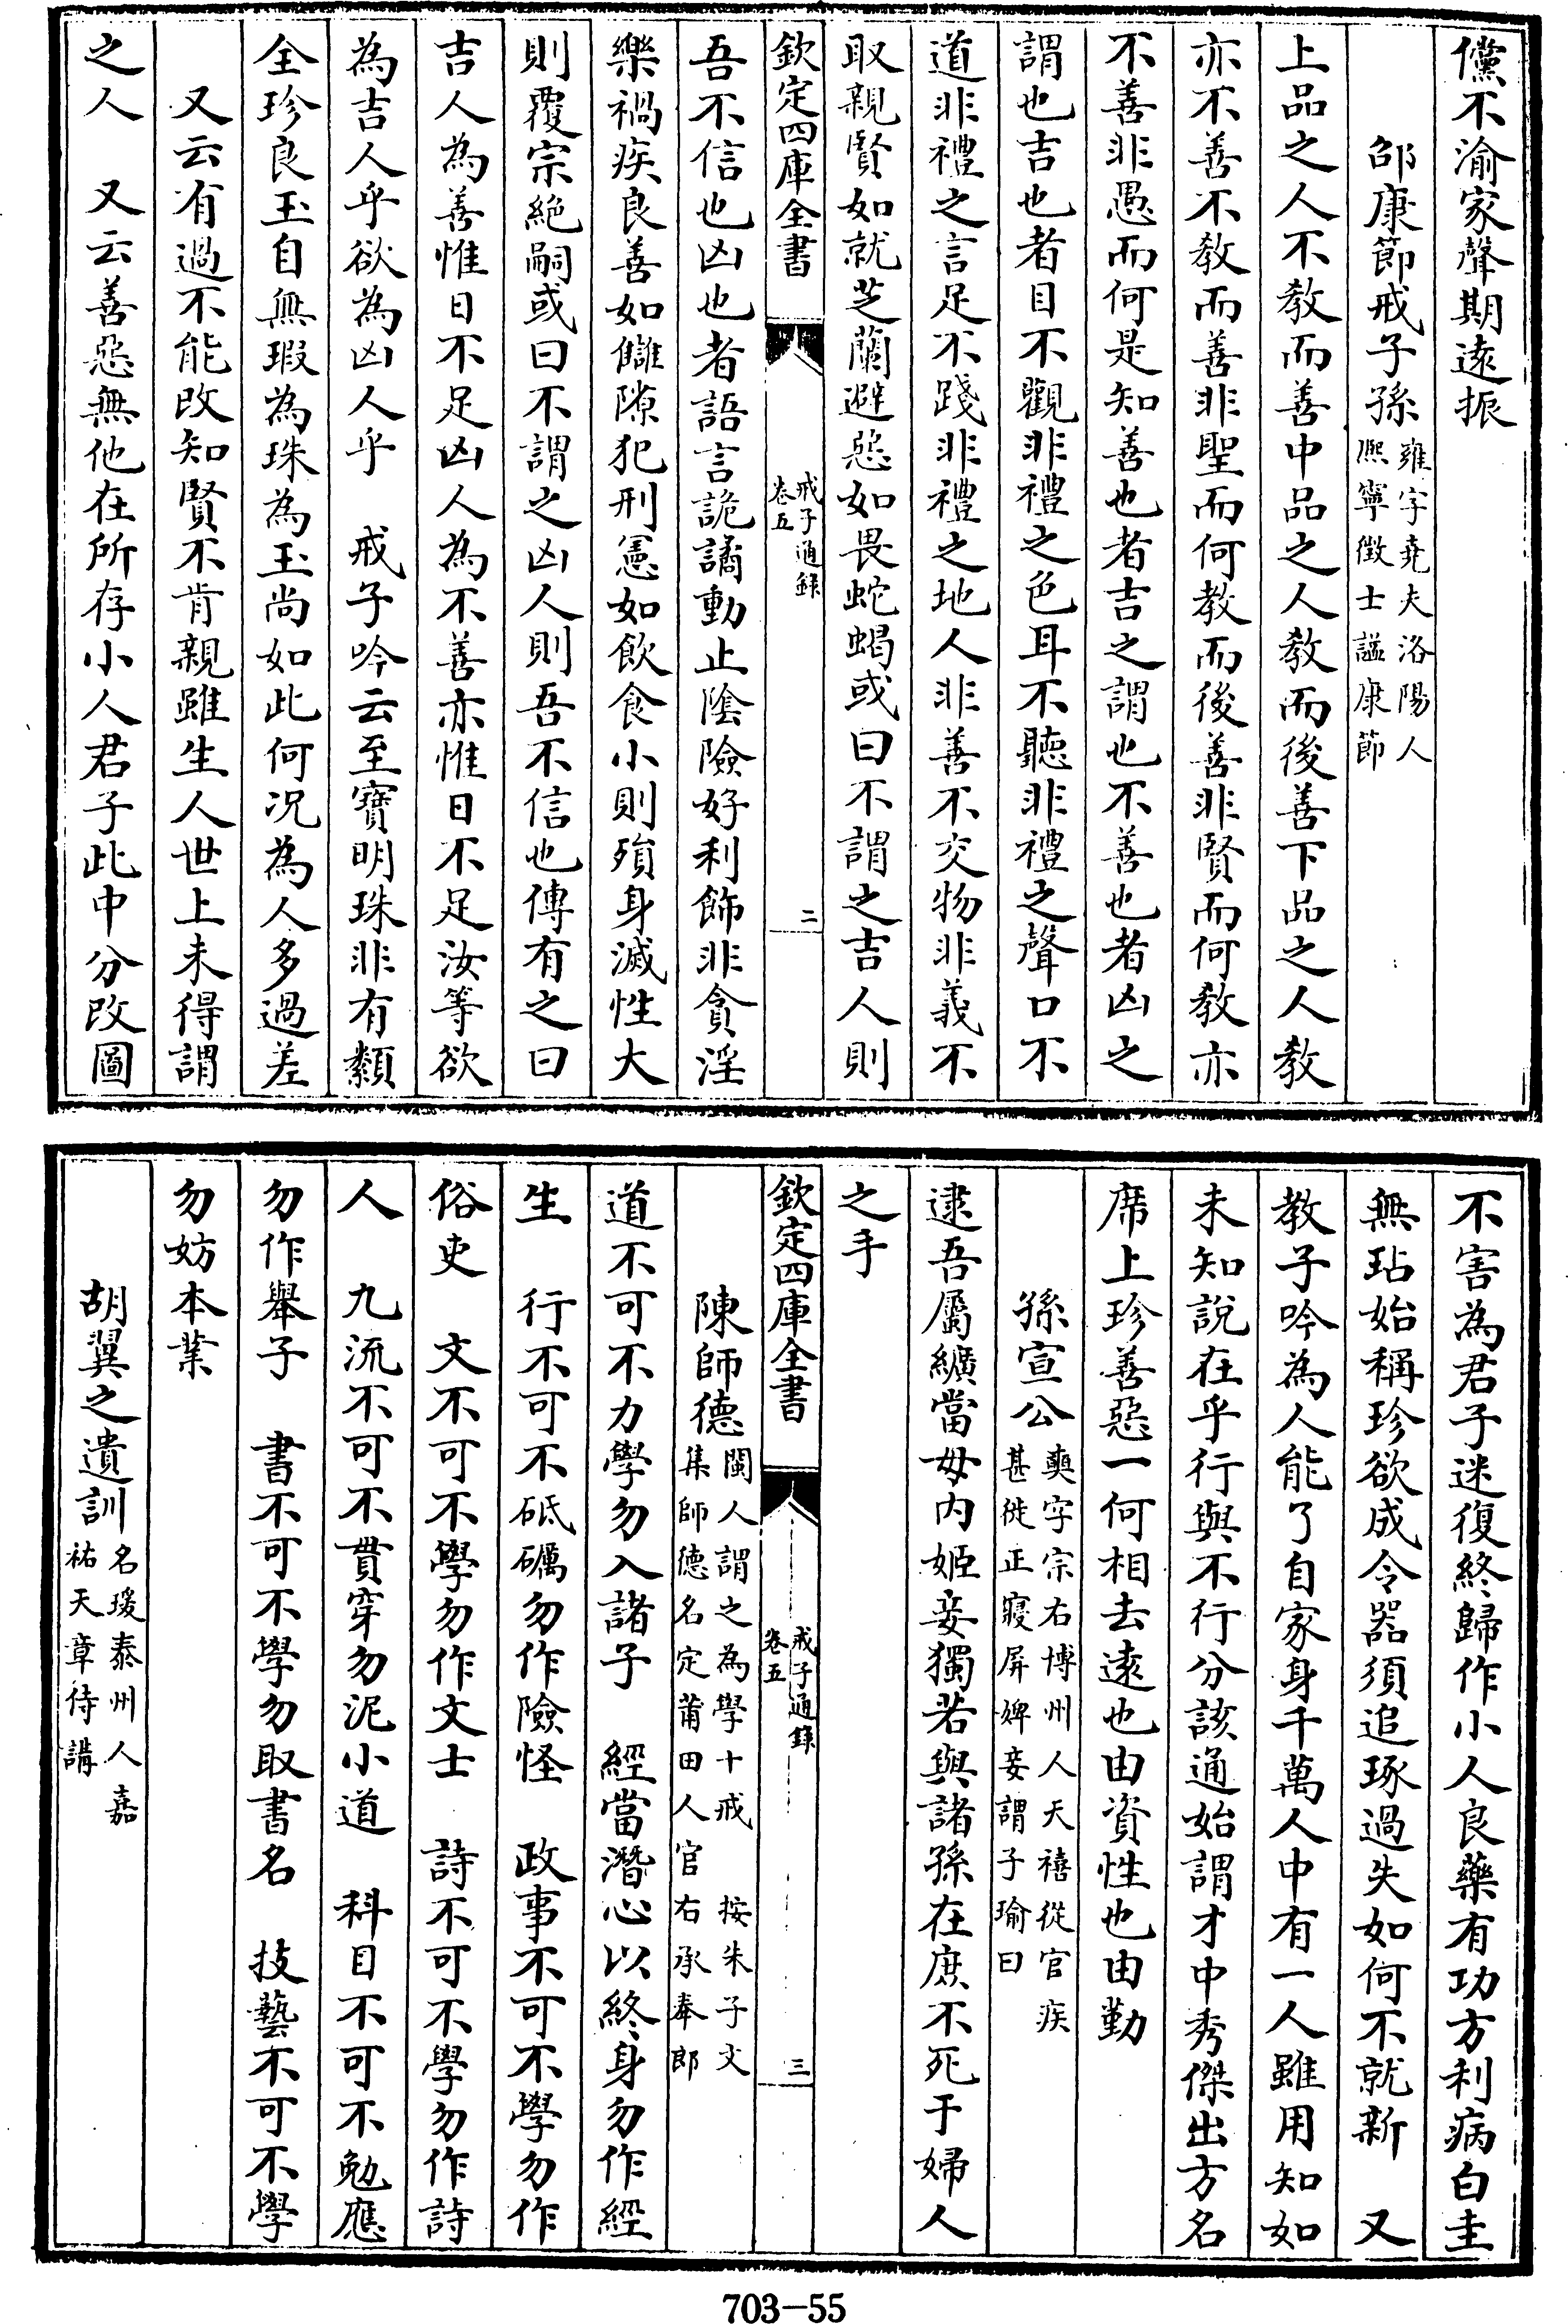 儻不渝家聲期逺振
邵康節戒子孫雍字堯夫洛陽人熈寧徵士謚康節
上品之人不教而善中品之人教而後善下品之人教
亦不善不教而善非聖而何教而後善非賢而何教亦
不善非愚而何是知善也者吉之謂也不善也者凶之
謂也吉也者目不觀非禮之色耳不聽非禮之聲口不
道非禮之言足不踐非禮之地人非善不交物非義不
取親賢如就芝蘭避惡如畏蛇蝎或曰不謂之吉人則
欽定四庫全書 戒子通録卷五 二
吾不信也凶也者語言詭譎動止陰險好利飾非貪淫
樂禍疾良善如讎隙犯刑憲如飲食小則殞身滅性大
則覆宗絶嗣或曰不謂之凶人則吾不信也傳有之曰
吉人為善惟日不足凶人為不善亦惟日不足汝等欲
為吉人乎欲為凶人乎 戒子吟云至寳明珠非有纇
全珍良玉自無瑕為珠為玉尚如此何况為人多過差
又云有過不能改知賢不肯親雖生人世上未得謂
之人 又云善惡無他在所存小人君子此中分改圖
不害為君子迷復終歸作小人良藥有功方利病白圭
無玷始稱珍欲成令器須追琢過失如何不就新 又
教子吟為人能了自家身千萬人中有一人雖用知如
未知說在乎行與不行分該通始謂才中秀傑出方名
席上珍善惡一何相去逺也由資性也由勤
孫宣公奭字宗右博州人天禧從官疾甚徙正寢屏婢妾謂子瑜曰
逮吾屬纊當毋内姬妾獨若與諸孫在庶不死于婦人
之手
欽定四庫全書 戒子通録卷五 三
陳師德閩人謂之為學十戒 按朱子文集師德名定莆田人官右承奉郎
道不可不力學勿入諸子 經當潛心以終身勿作經
生 行不可不砥礪勿作險怪 政事不可不學勿作
俗吏 文不可不學勿作文士 詩不可不學勿作詩
人 九流不可不貫穿勿泥小道 科目不可不勉應
勿作舉子 書不可不學勿取書名 技藝不可不學
勿妨本業
胡翼之遺訓名瑗泰州人嘉祐天章待講
703-55